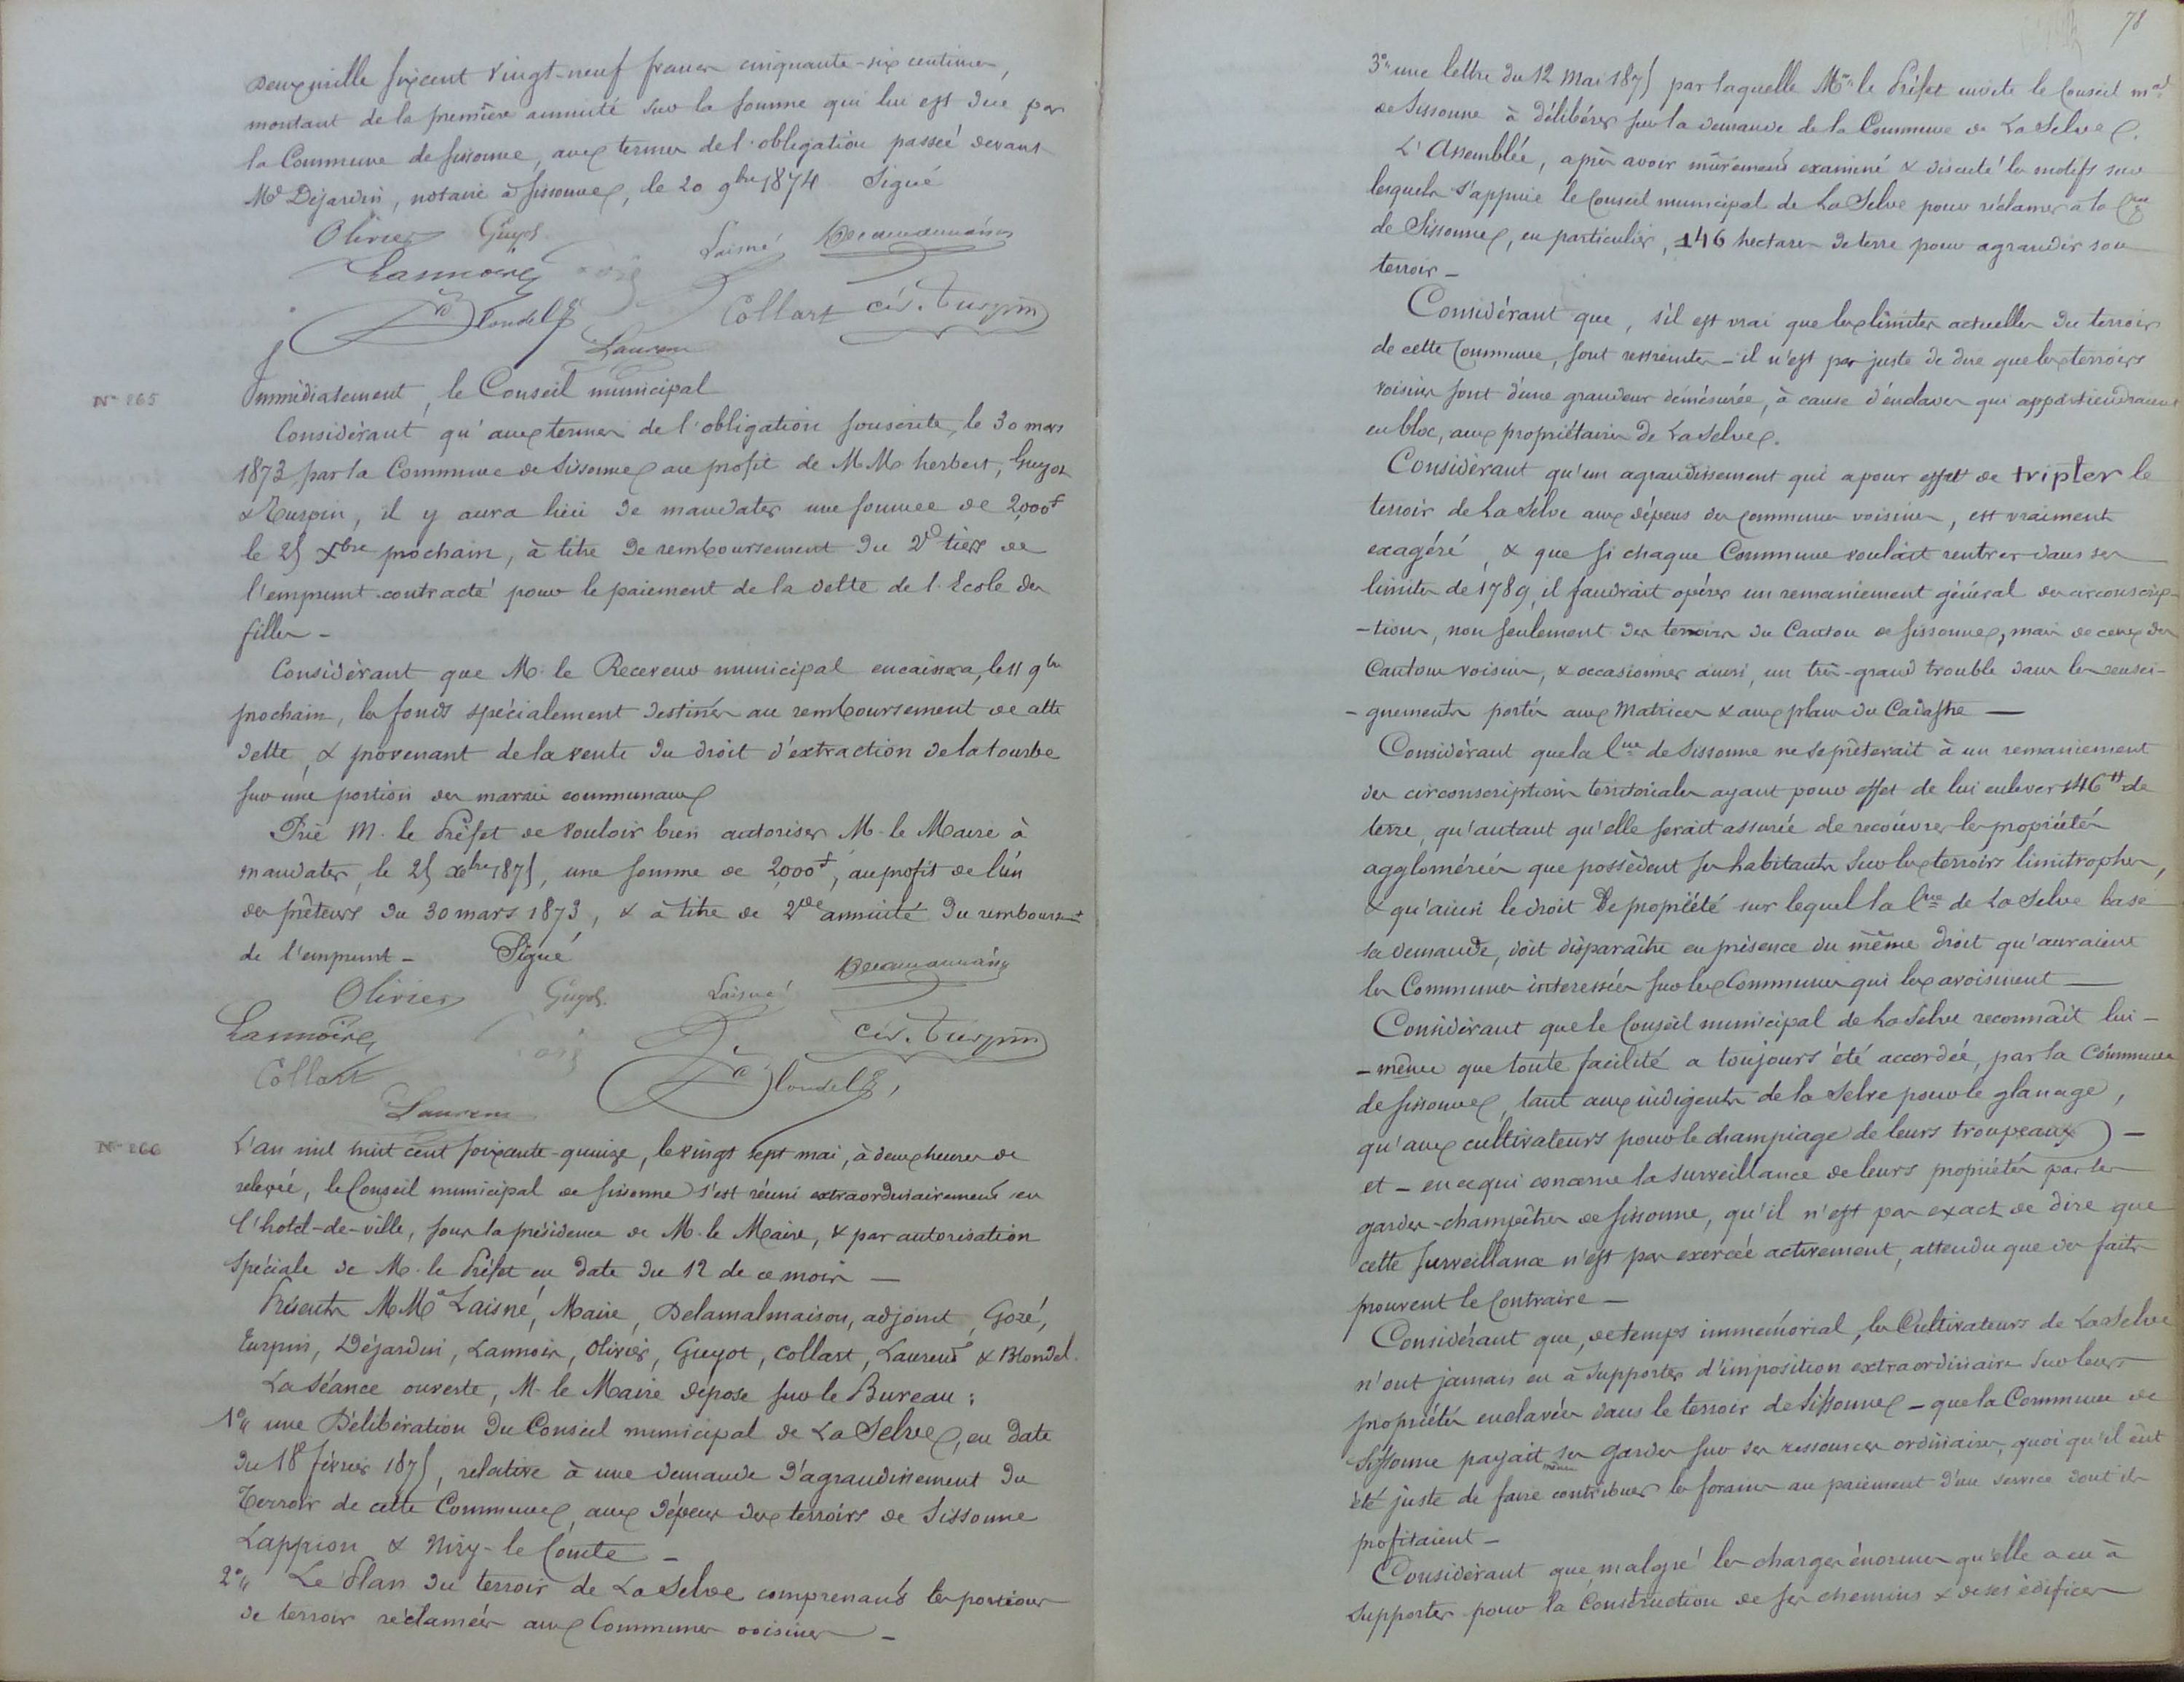 Deux mille six cent vingt-neuf francs cinquante-six centimes,
montant de la première annuité sur la somme qui lui est due par
la Commune de Sissonne, aux termes de l'obligation passée devant
Me Déjardin, notaire à Sissonne, le 20 9bre 1874. Signé
Olivier Guyot Laisné Delamalmaison
Lannoire
Blondel Collart Cés. Turpin
Laurent
N° 265 Immédiatement, le Conseil municipal
Considérant qu'aux termes de l'obligation souscrite, le 30 mars
1873 par la Commune de Sissonne au profit de MM. herbert, Guyot
& Turpin, il y aura lieu de mandater une somme de 2,000f
le 25 Xbre prochain, à titre de remboursement du 2e tiers de
l'emprunt contracté pour le paiement de la dette de l'Ecole des
filles –
Considérant que M. le Receveur municipal encaissera, le 11 9bre
prochain, les fonds spécialement destinés au remboursement de cette
dette, & provenant de la vente du droit d'extraction de la tourbe
sur une portion des marais communaux
Prie M. le Préfet de vouloir bien autoriser M. le Maire à
mandater, le 25 Xbre 1875, une somme de 2,000f, au profit de l'un
des prêteurs du 30 mars 1873, & à titre de 2de annuité du remboursmt
de l'emprunt – Signé
Olivier Guyot Laisné Delamalmaison
Lannoire Cés. Turpin
Collart Blondel
Laurent
N° 266 L'an mil huit cent soixante-quinze, le vingt sept mai, à deux heures de
relevée, le Conseil municipal de Sissonne s'est réuni extraordinairement en
l'hotel-de-ville, sous la présidence de M. le Maire, & par autorisation
spéciale de M. le Préfet en date du 12 de ce mois —
Présents MMrs Laisné, Maire, Delamalmaison, adjoint, Gozé,
Turpin, Déjardin, Lannoir, Olivier, Guyot, Collart, Laurent & Blondel.
La séance ouverte, M. le Maire dépose sur le Bureau :
1° une Délibération du Conseil municipal de La Selve, en date
du 18 février 1875, relative à une demande d'agrandissement du
Terroir de cette Commune, aux dépens des terroirs de Sissonne
Lappion & Nizy-le Comte –
2° Le Plan du terroir de La Selve comprenant les portions
de terroir réclamées aux Communes voisines –
78
3° une lettre du 12 Mai 1875 par laquelle Mr le Préfet invite le Conseil mal
de Sissonne à délibérer sur la demande de la Commune de La Selve.
L'Assemblée, après avoir mûrement examiné & discuté les motifs sur
lesquels s'appuie le Conseil municipal de La Selve pour réclamer à la Cne
de Sissonne, en particulier, 146 hectares de terre pour agrandir son
terroir –
Considérant que, s'il est vrai que les limites actuelles du terroir
de cette Commune, sont restreintes – il n'est pas juste de dire que les terroirs
voisins sont d'une grandeur démésurée, à cause d'enclaves qui appartiendraient
en bloc, aux propriétaires de La Selve.
Considérant qu'un agrandissement qui a pour effet de tripler le
terroir de La Selve aux dépens des Communes voisines, est vraiment
exagéré, & que si chaque Commune voulait rentrer dans ses
limites de 1789, il faudrait opérer un remaniement général des circonscrip-
-tions, non seulement des terroirs du Canton de Sissonne, mais de ceux des
Cantons voisins, & occasionner ainsi, un très-grand trouble dans les rensei-
-gnements portés aux Matrices & aux plans du Cadastre —
Considérant que la Cne de Sissonne ne se prêterait à un remaniement
des circonscriptions territoriales ayant pour effet de lui enlever 146 H de
terre, qu'autant qu'elle serait assurée de recouvrer les propriétés
agglomérées que possèdent ses habitants sur les terroirs limitrophes,
& qu'ainsi le droit de propriété sur lequel la Cne de La Selve base
sa demande, doit disparaître en présence du même droit qu'auraient
les Communes intéressées sur les Communes qui les avoisinent —
Considérant que le Conseil municipal de La Selve reconnaît lui-
-même que toute facilité a toujours été accordée, par la Commune
de Sissonne, tant aux indigents de la Selve pour le glanage,
qu'aux cultivateurs pour le champiage de leurs troupeaux –
et – en ce qui concerne la surveillance de leurs propriétés par les
gardes-champêtres de Sissonne, qu'il n'est pas exact de dire que
cette surveillance n'est pas exercée activement, attendu que des faits
prouvent le Contraire —
Considérant que, de temps immémorial, les Cultivateurs de La Selve
n'ont jamais eu à supporter d'imposition extraordinaire sur leurs
propriétés enclavées dans le terroir de Sissonne – que la Commune de
Sissonne payait même ses gardes sur ses ressources ordinaires, quoiqu'il eût
été juste de faire contribuer les forains au paiement d'un service dont ils
profitaient –
Considérant que malgré les charges énormes qu'elle a eu à
supporter pour la Construction de ses chemins & de ses édifices